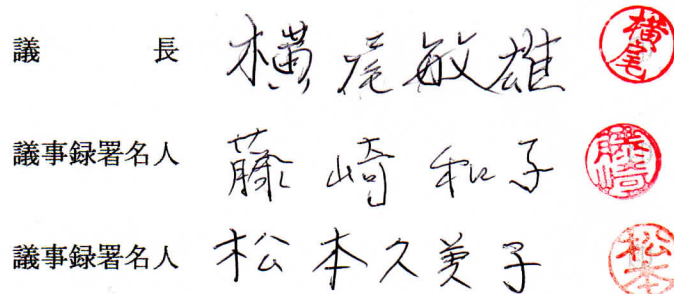 議長 横尾敏雄 横尾
議事録署名人 藤崎和子 藤崎
議事録署名人 松本久美子 松本